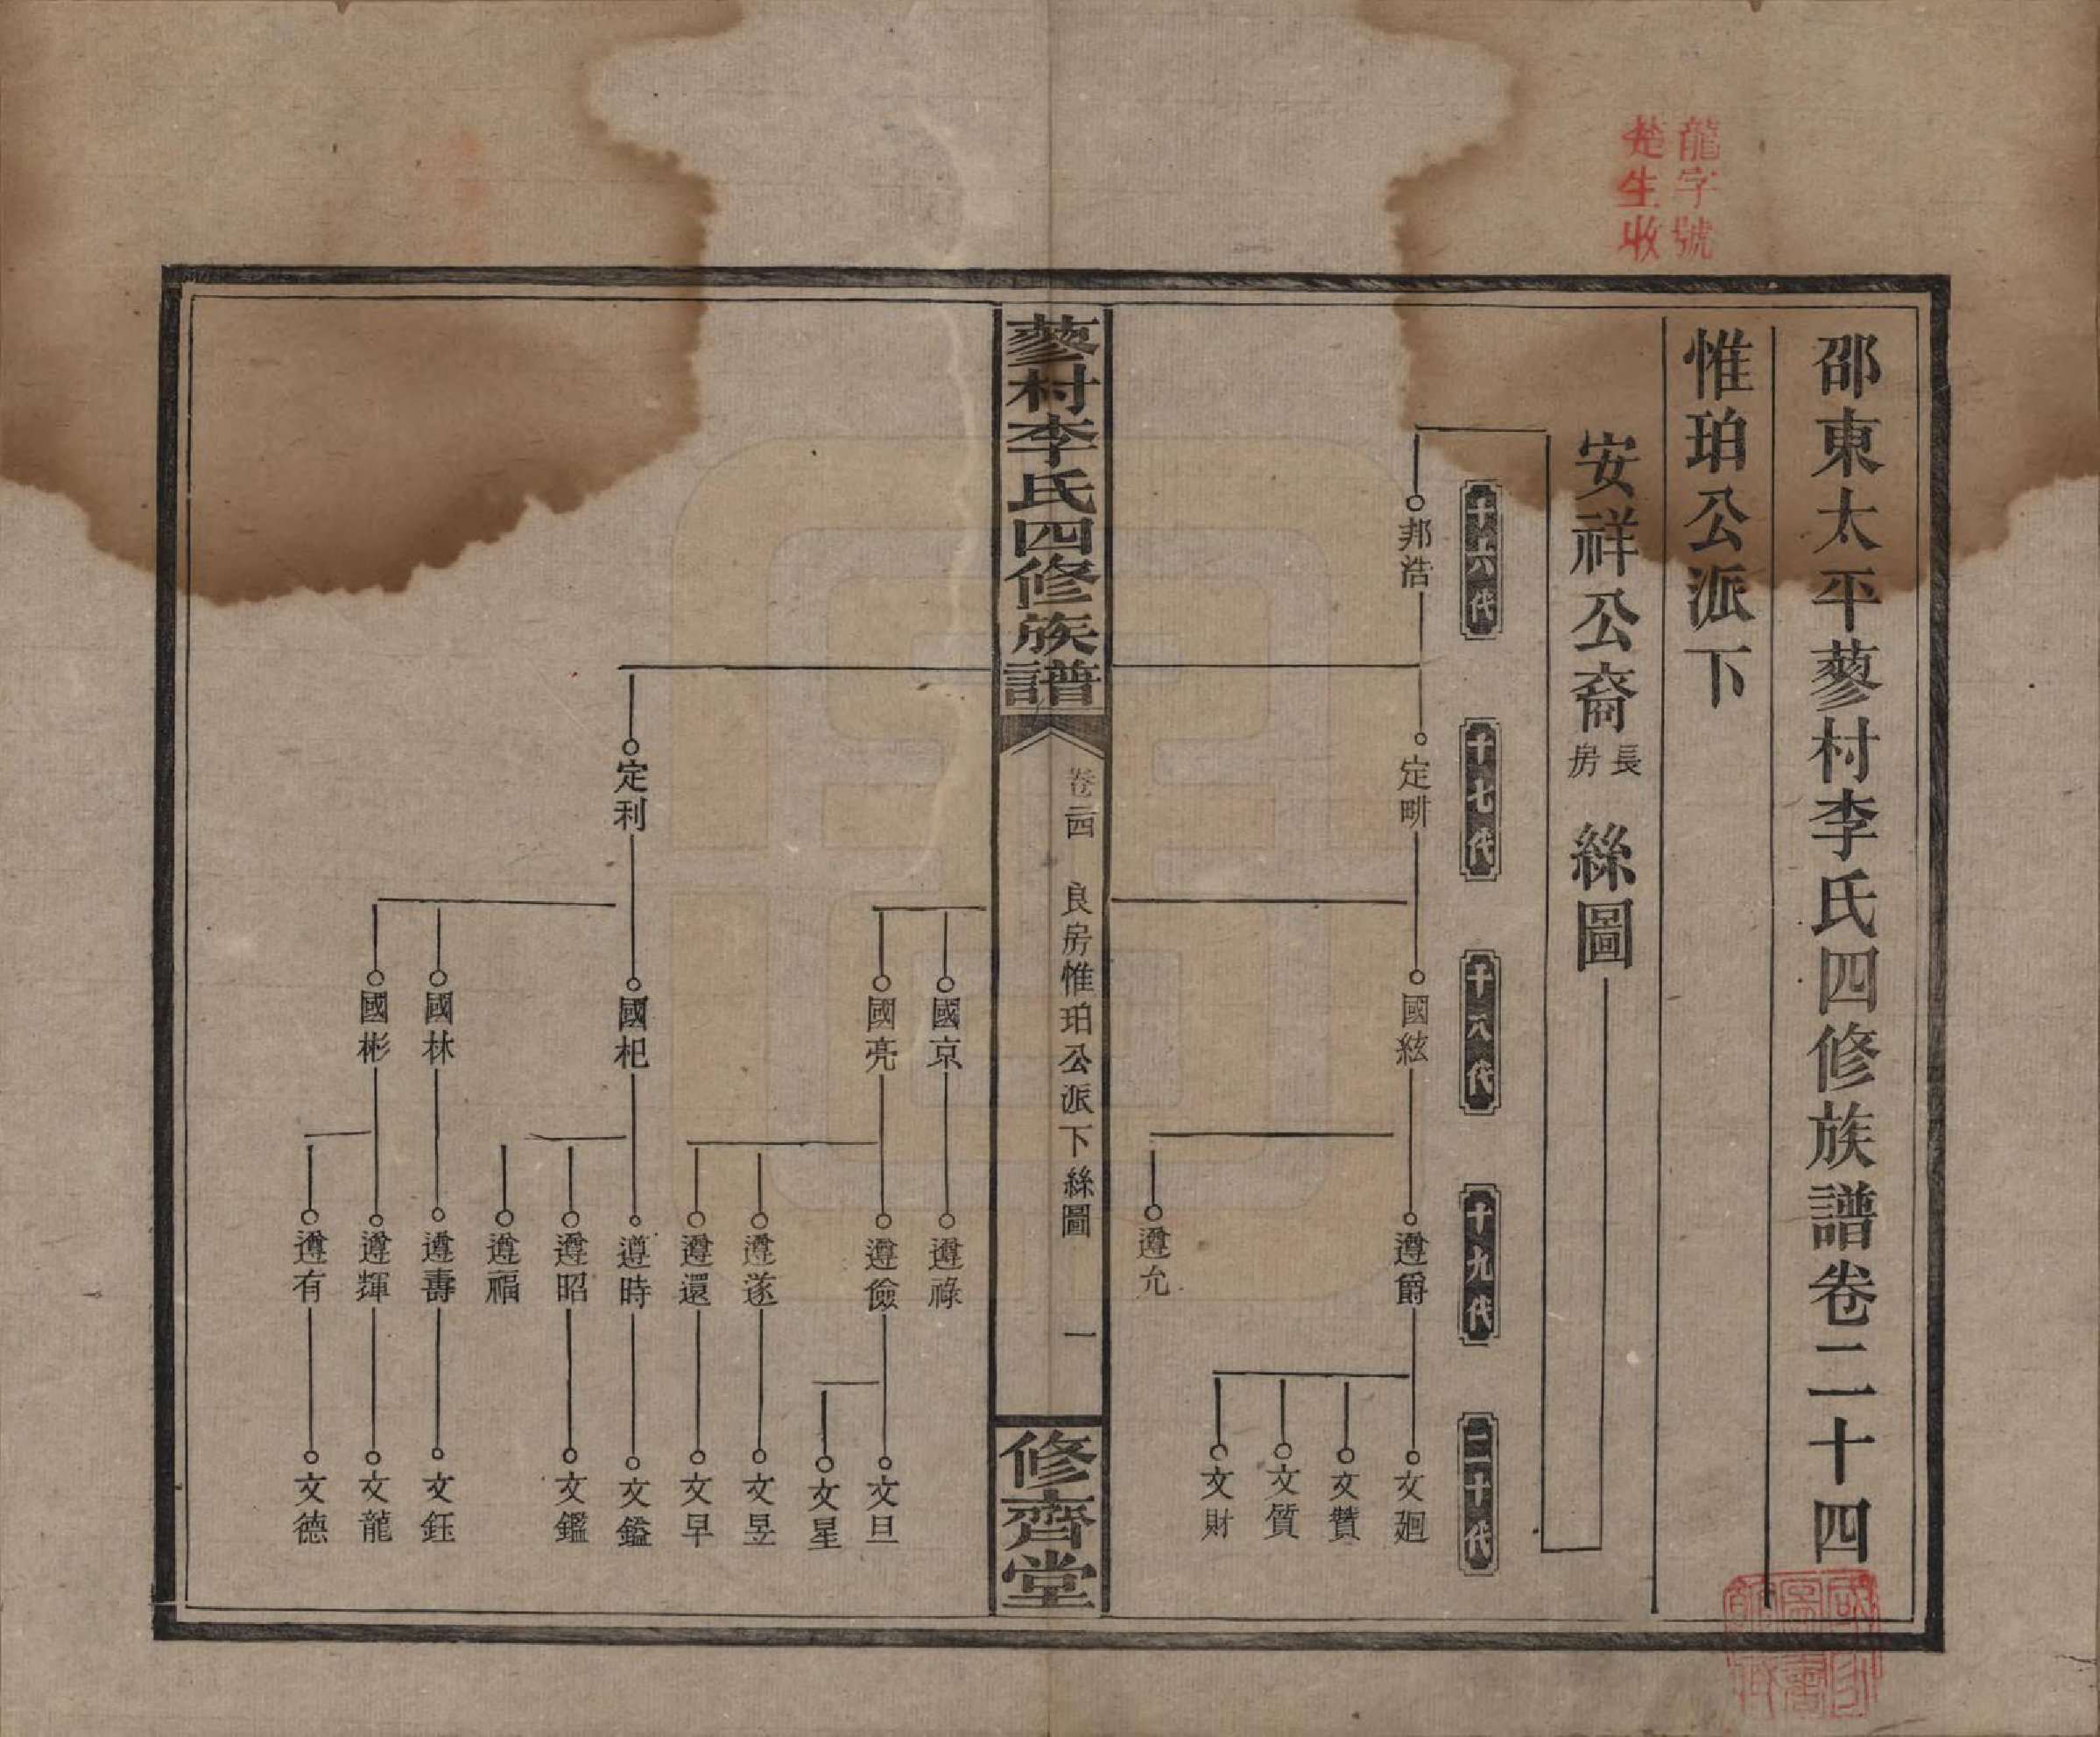 龍字號
楚生收
邵東太平蓼村李氏四修族譜卷二十四
惟珀公派下
安祥公裔長房 絲圖
十六代
十七代
十八代
十九代
二十代
邦浩
定畊
國絃
遵爵
文廻
文贊
文質
文財
遵允
蓼村李氏四修族譜
卷二四
良房惟珀公派下絲圖
一
修齊堂
國京
遵祿
國亮
遵儉
文旦
文星
遵遂
文昱
遵還
文早
定利
國杞
遵時
文鎰
遵昭
文鑑
遵福
國林
遵壽
文鈺
國彬
遵輝
文龍
遵有
文德